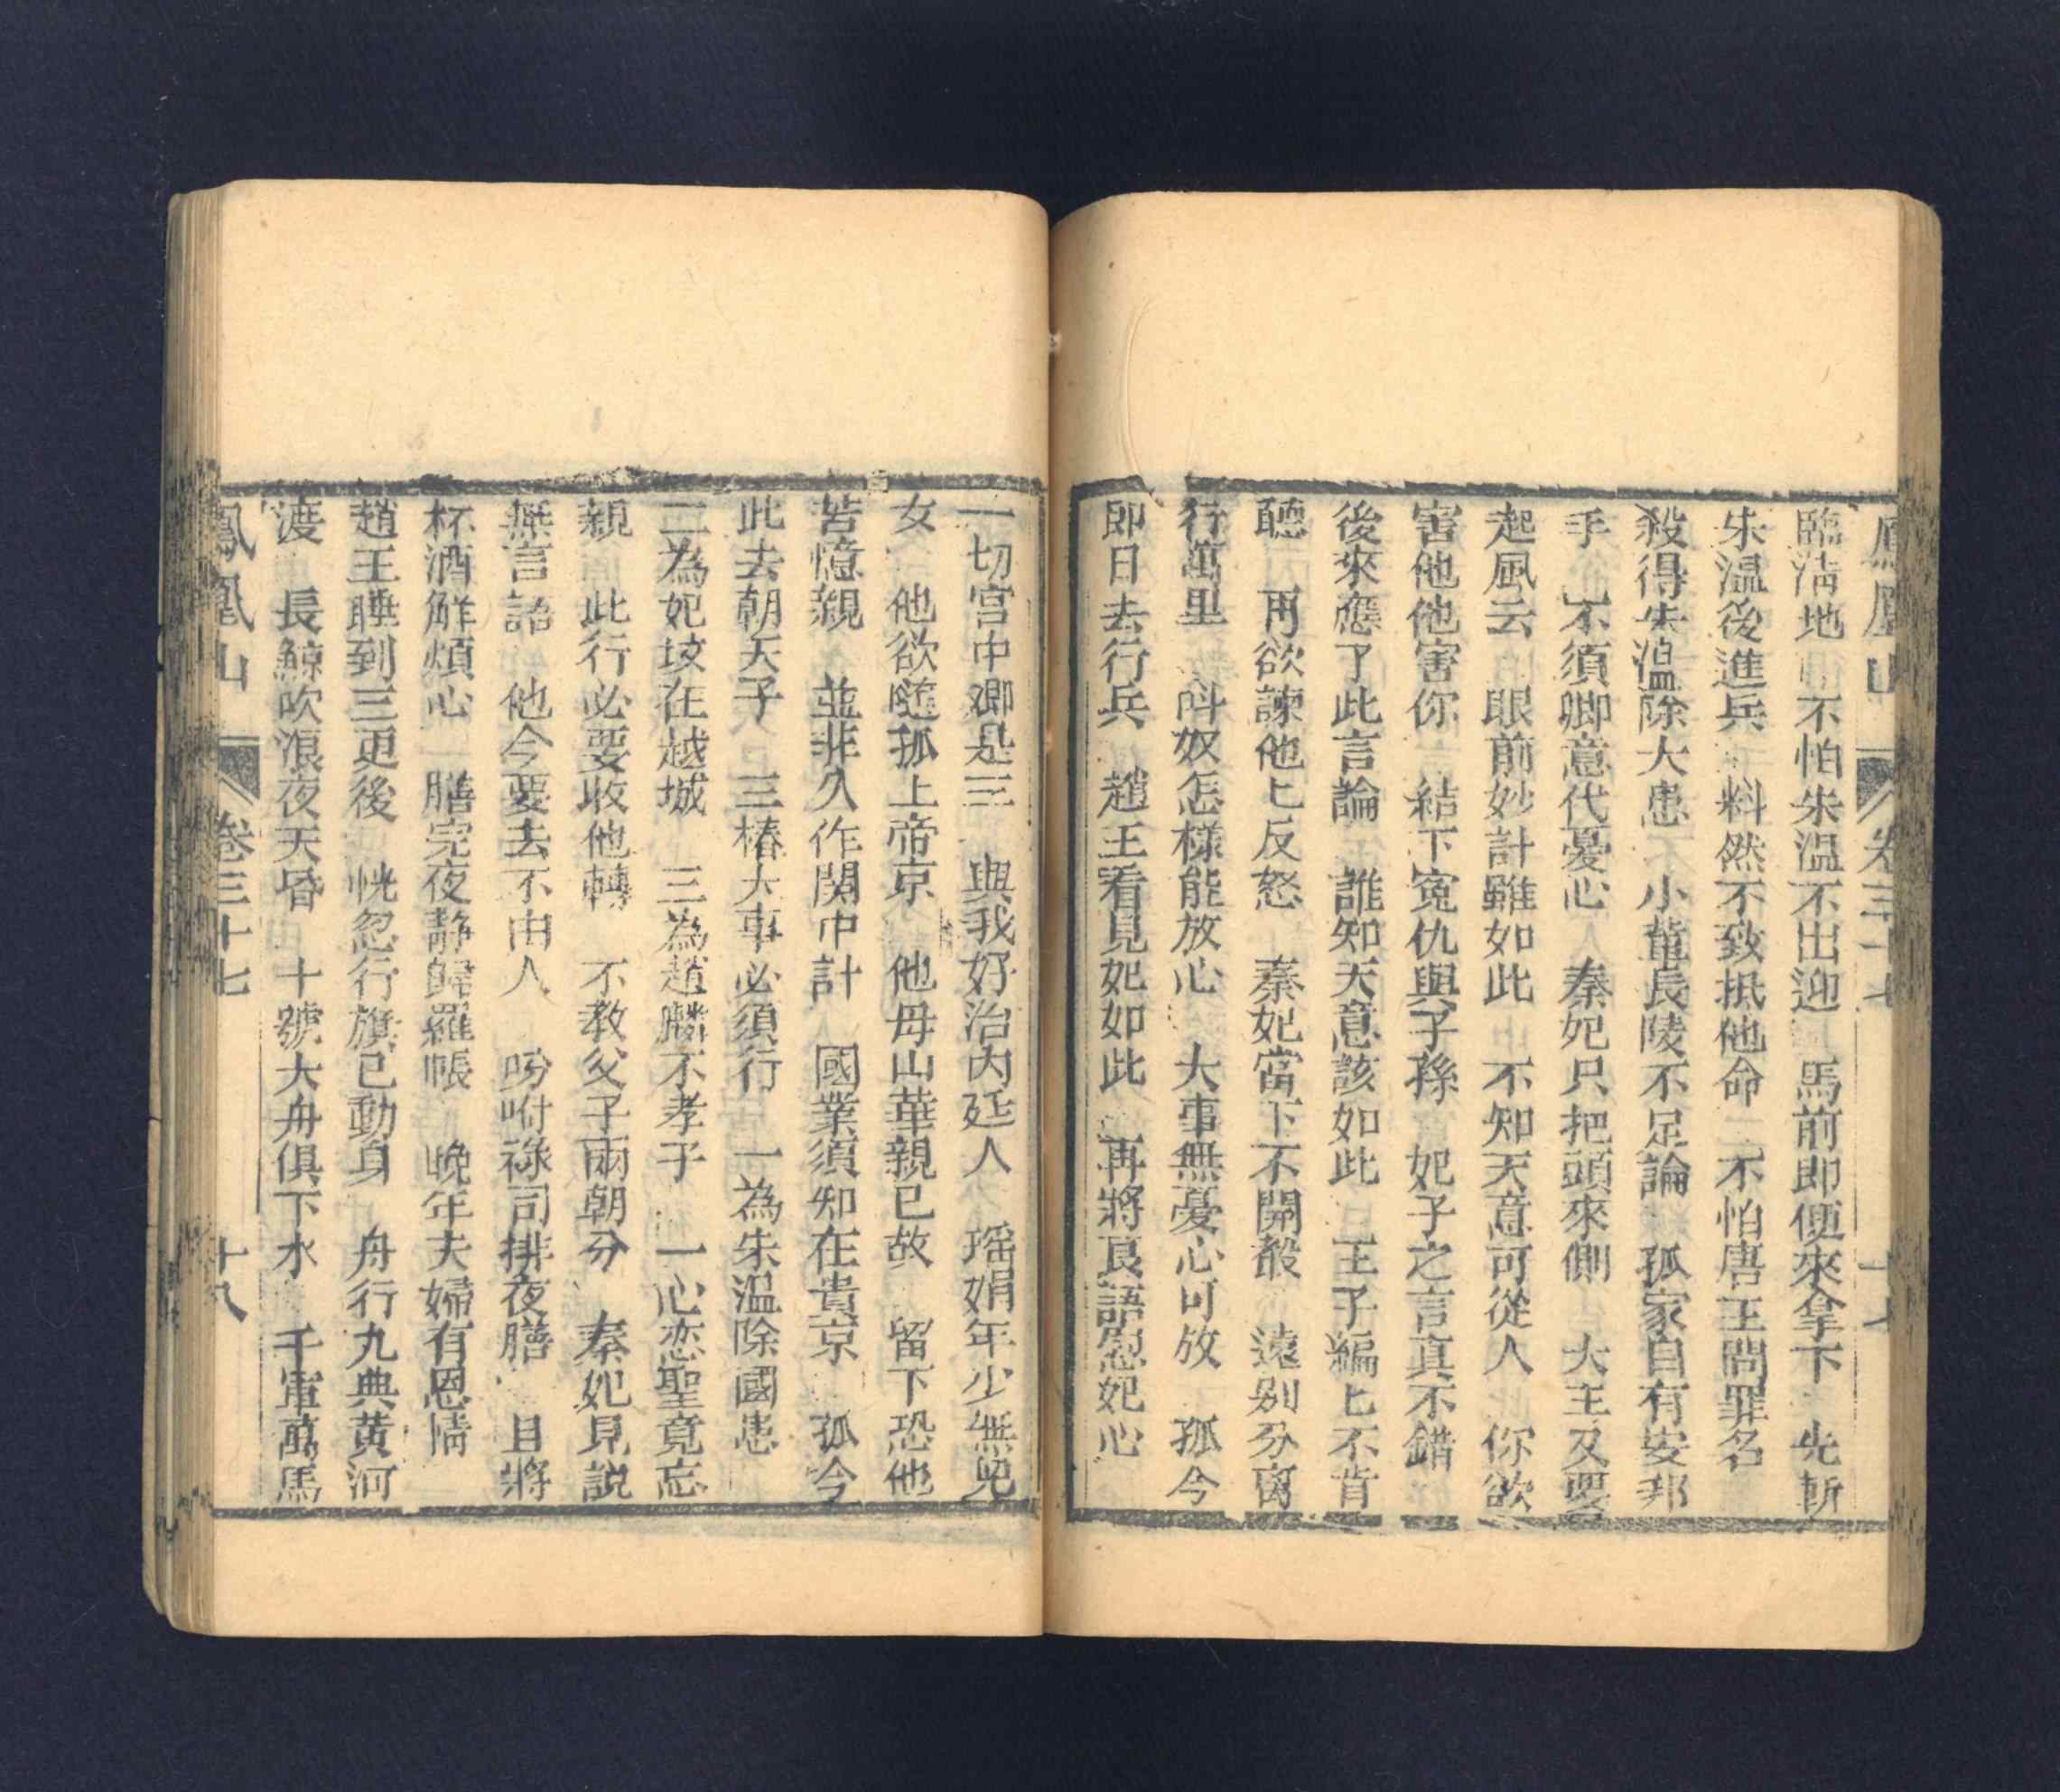 鳳凰山 卷三十七 十七
臨清地 不怕朱溫不出迎 馬前即便來拿下 先斬
朱溫後進兵 料然不致抵他命 不怕唐王問罪名
殺得朱溫除大患 小輩長陵不足論 孤家自有安邦
手 不須卿意代憂心 秦妃只把頭來側 大王又要
起風云 眼前妙計雖如此 不知天意可從人 你欲
害他他害你 結下寃仇與子孫 妃子之言真不錯
後來應了此言論 誰知天意該如此 王子編匕不肯
聽 再欲諫他匕反怒 秦妃當下不開殽 遠别分离
行萬里 呌奴怎樣能放心 大事無憂心可放 孤今
即日去行兵 趙王看見妃如此 再將良語慰妃心
一切宫中卿是三 與我好治内廷人 瑶娟年少無兒
女 他欲隨孤上帝京 他母山華親已故 留下恐他
苦憶親 並非久作関中計 國業須知在貴京 孤今
此去朝天子 三樁大事必須行 一為朱溫除國患
二為妃坟在越城 三為趙麟不孝子 一心恋聖竟忘
親 此行必要收他轉 不教父子兩朝分 秦妃見説
無言語 他今要去不由人 吩咐祿司排夜膳 且將
杯酒解煩心 膳完夜静歸羅帳 晚年夫婦有恩情
趙王睡到三更後 恍忽行旗已動身 舟行九典黄河
渡 長鯨吹浪夜天昏 十號大舟俱下水 千軍萬馬
鳳凰山 卷三十七 十八